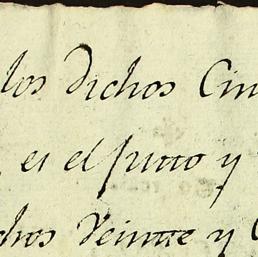 los dichos Cin
es el justo y
chos Veinte y